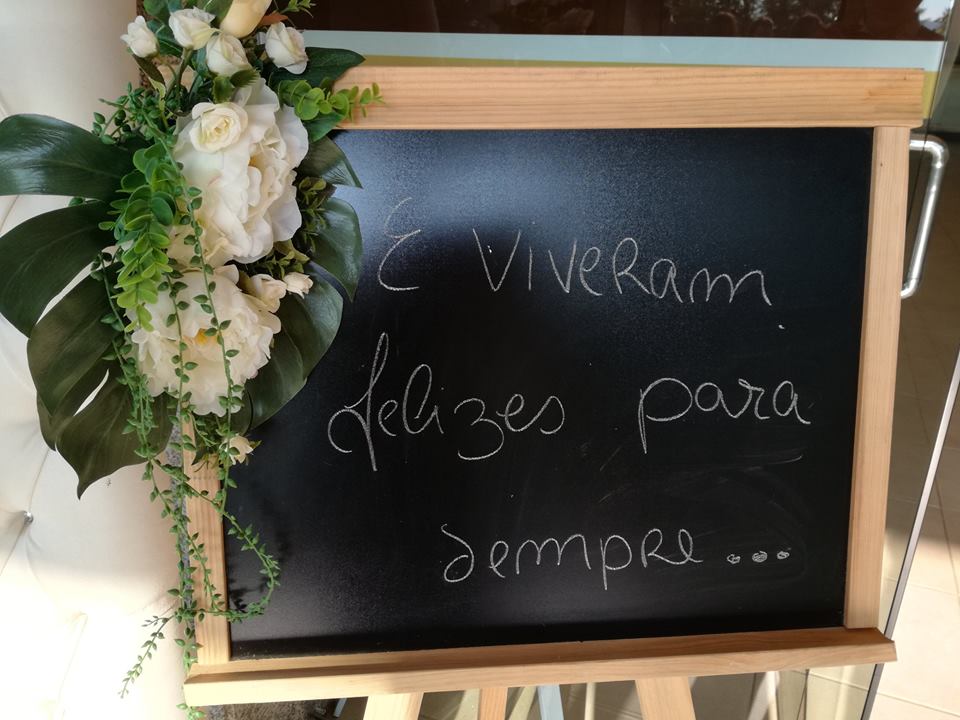 E viveram
felizes para
sempre...